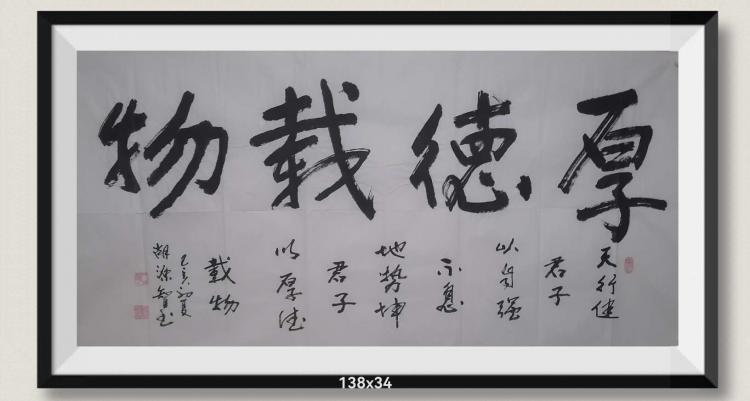 厚德載物
天行健
君子
以自强
不息
地势坤
君子
以厚德
載物
己亥初夏
138x34